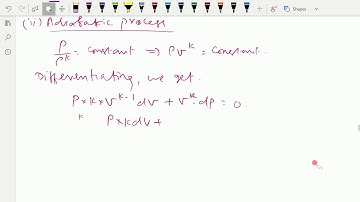 (ii) Adrabatic process
P/ρ^k = Constant ⇒ PV^k = Constant.
Differentiating, we get.
P×k×V^{k-1} dV + V^k. dp = 0.
k P×k dV +